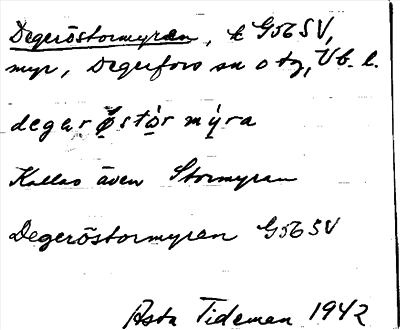 Degeröstormyran, t G56 SV,
myr, Degerfors sn o tg, Vb. l.
degerøstòrmýra
Kallas även Stormyran
Degeröstormyran G56 SV
Asta Tideman 1942